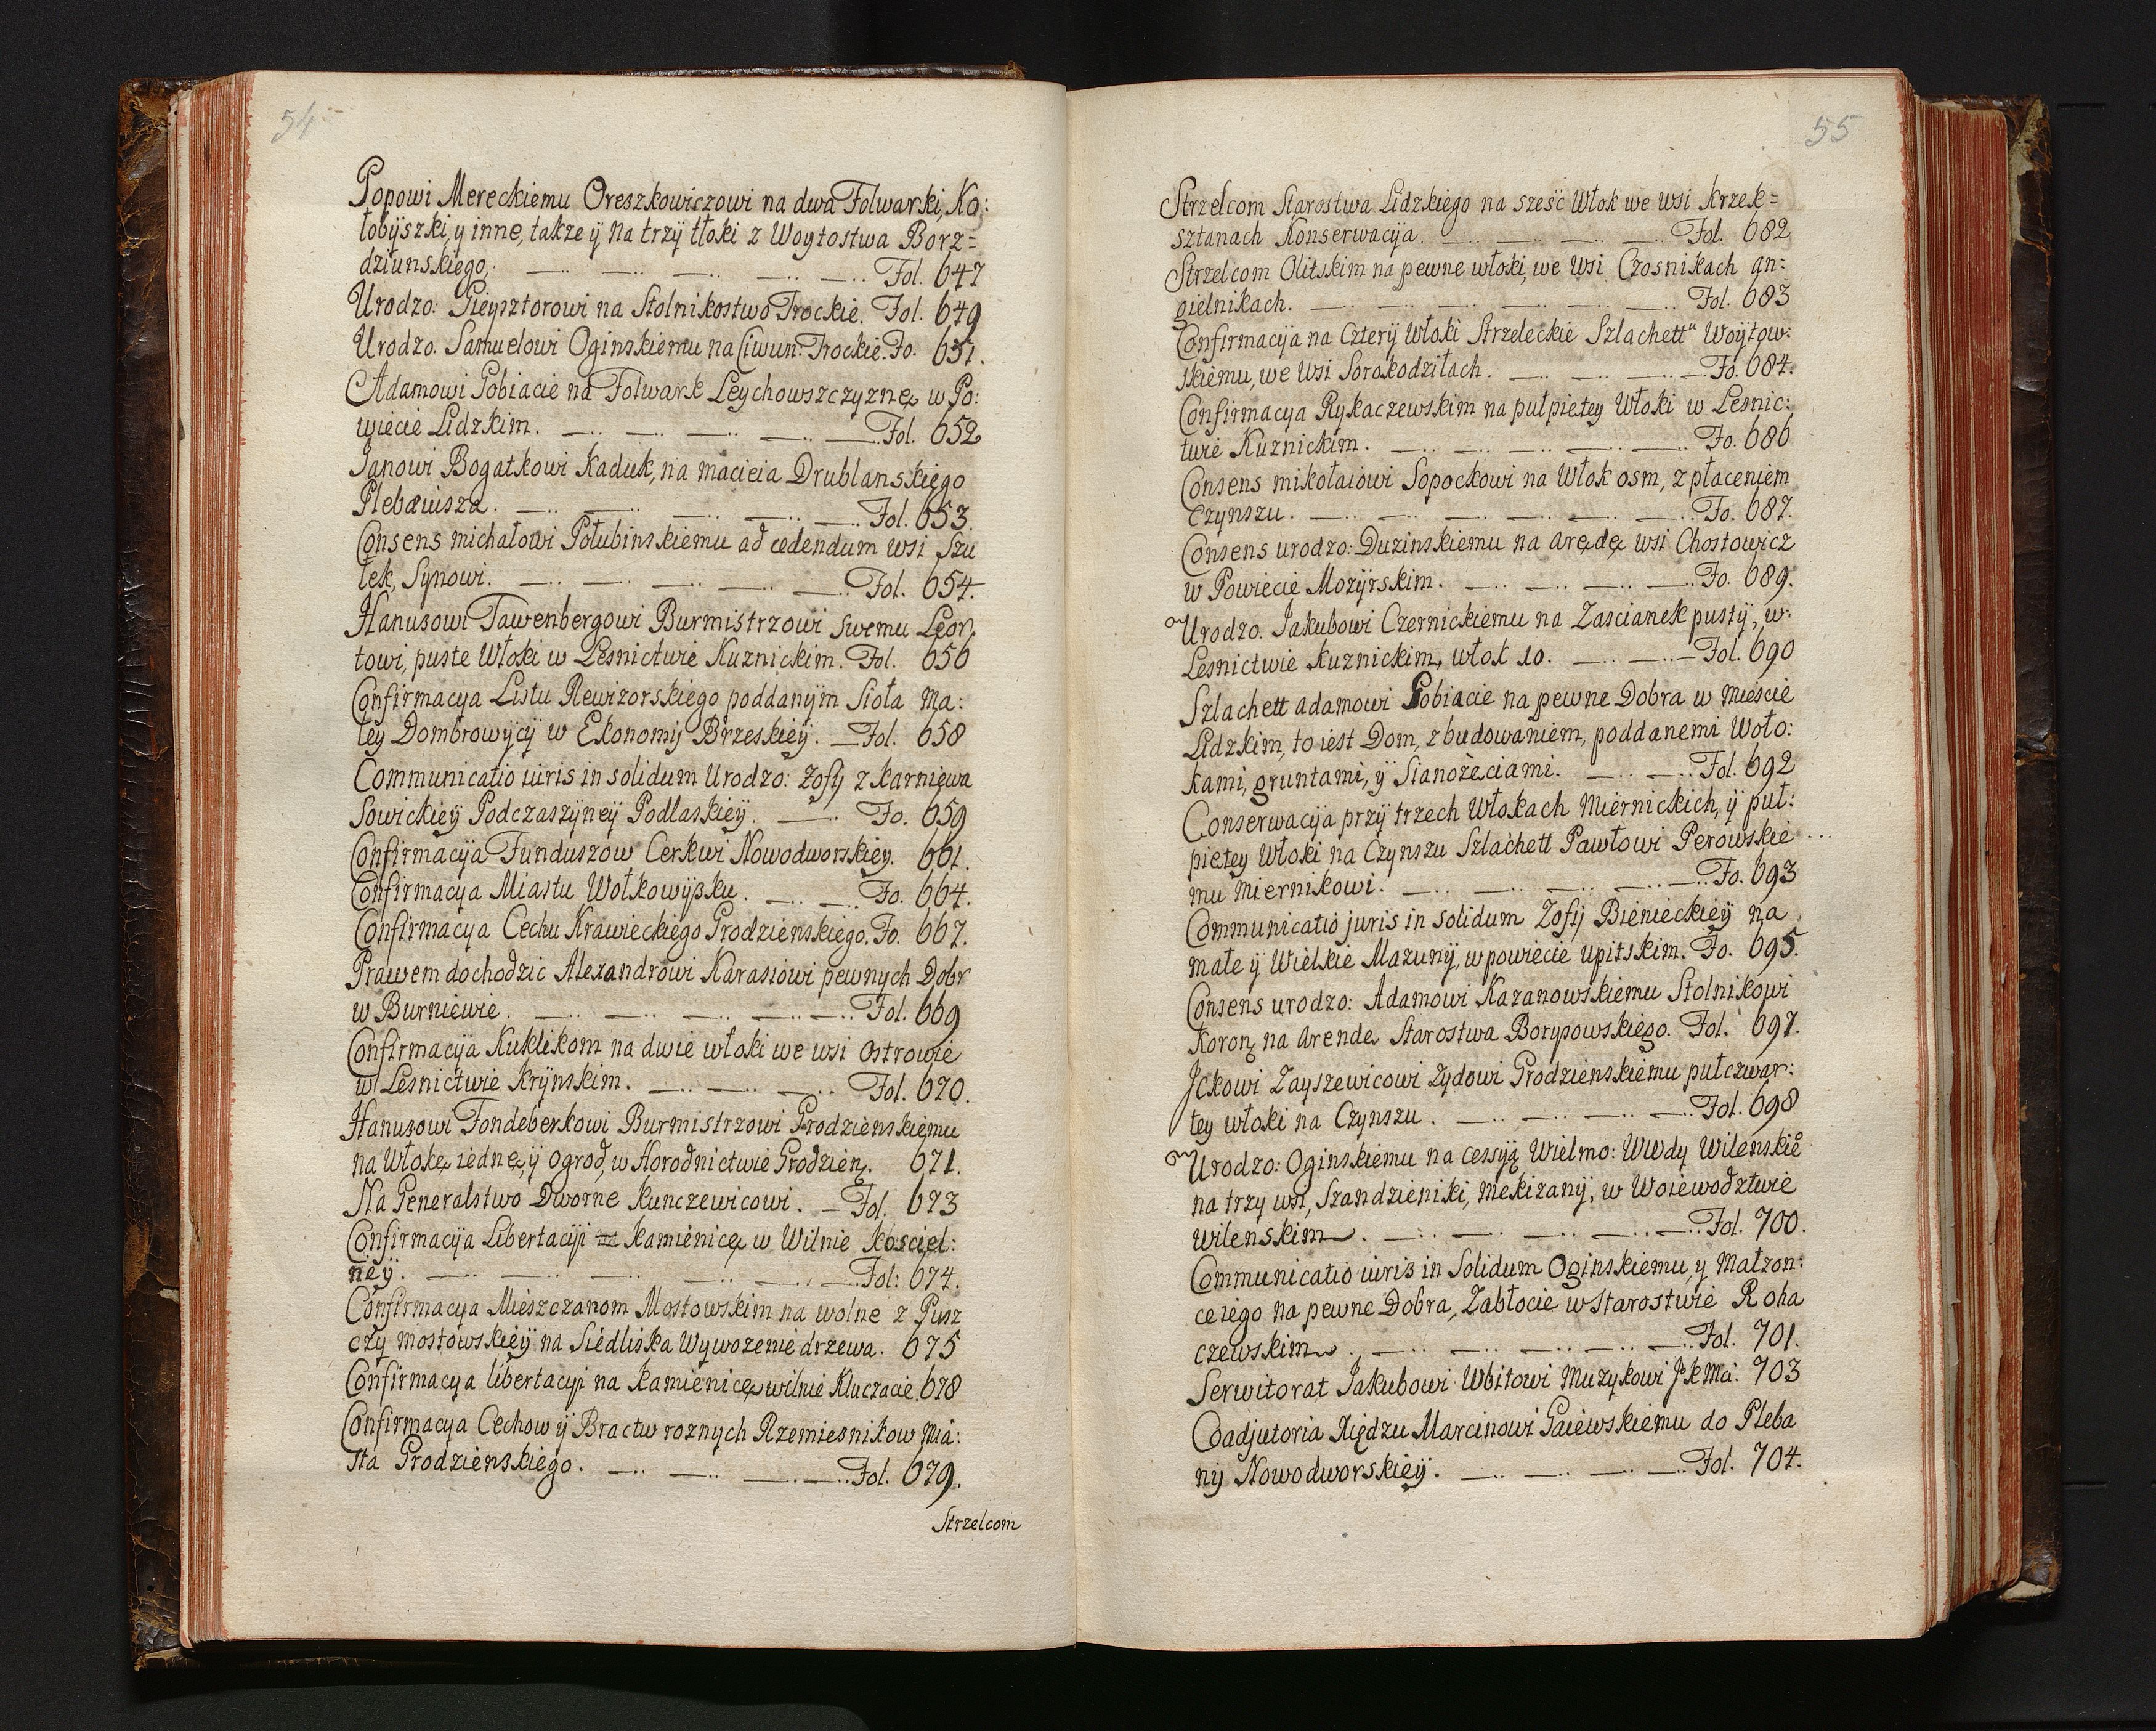 54
Popowi Mereckiemu Oreszkowiczowi na dwa Folwarki, Ko:
łobÿszki, y inne, takze ÿ na trzÿ tłoki z Woytostwa Borz=
dziunskiego, Fol. 647
Urodzo: Gieysztorowi na Stolnikostwo Trockie. Fol. 649
Urodzo. Samuelowi Oginskiemu na Ciwun: Trockie. Fo. 651.
Adamowi Pobiacie na Folwark Leychowszczyznę w Po:
wiecie Lidzkim. Fol. 652
Janowi Bogatkowi Kaduk, na macieia Drublanskiego
Plebaiusza. Fol. 653.
Consens michałowi Połubinskiemu ad cedendum wsi Szu
łek, Synowi. Fol. 654.
Hanusowi Tawenbergowi Burmistrzowi swemu Leon
towi, puste Włoki w Lesnictwie Kuznickim. Fol. 656
Confirmacya Listu Rewizorskiego poddanÿm Sioła Ma:
łey Dombrowÿcÿ w Ekonomÿ Brzeskiey. Fol. 658
Communicatio iuris in solidum Urodzo: Zofÿ z Karniewa
Sowickieÿ Podczaszÿneÿ Podlaskieÿ. Fo. 659
Confirmacÿa Funduszow Cerkwi Nowodworskiey. 661.
Confirmacya Miastu Wołkowÿsku. Fo. 664.
Confirmacya Cechu Krawieckiego Grodzienskiego. Fo. 667.
Prawem dochodzic Alexandrowi Karasiowi pewnych Dobr
w Burniewie. Fol. 669
Confirmacÿa Kuklikom na dwie włoki we wsi Ostrowie
w Lesnictwie Krÿnskim. Fol. 670.
Hanusowi Fondeberkowi Burmistrzowi Grodzienskiemu
na Włokę iednę, ÿ ogrod, w Horodnictwie Grodzien. 671.
Na Generalstwo Dworne Kunczewicowi. Fol. 673
Confirmacÿa Libertacÿi Kamienicę w Wilnie Kosciel:
neÿ. Fol: 674.
Confirmacya Mieszczanom Mostowskim na wolne z Pusz
czy mostowskieÿ na Siedliska Wywozenie drzewa. 675
Confirmacya libertacyi na Kamienicę wilnie Kluczacie. 678
Confirmacya Cechow ÿ Bractw roznych Rzemiesnikow Mia:
sta Grodzienskiego. Fol. 679.
Strzelcom
55
Strzelcom Starostwa Lidzkiego na szesc Włok we wsi Krzek=
sztanach Konserwacÿa. Fol. 682
Strzelcom Olitskim na pewne włoki, we wsi Czosnikach an:
gielnikach. Fol. 683
Confirmacÿa na Czterÿ Włoki Strzeleckie Szlachett" Woÿtow:
skiemu, we wsi Sorokodziłach. Fo. 684.
Confirmacya Rykaczewskim na pułpietey Włoki w Lesnic:
twie Kuznickim. Fo. 686
Consens mikołaiowi Sopockowi na Włok osm, z płaceniem
Czynszu. Fo. 687.
Consens urodzo: Duzinskiemu na arędę wsi Chostowicz
w Powiecie Mozÿrskim. Fo. 689.
Urodzo. Jakubowi Czernickiemu na Zascianek pustÿ, w:
Lesnictwie Kuznickim, włok 10. Fol. 690
Szlachett adamowi Pobiacie na pewne Dobra w mieście
Lidzkim, to iest Dom, z budowaniem, poddanemi Woło:
kami, gruntami, ÿ Sianożęciami. Fol. 692
Conserwacÿa przÿ trzech Włokach Miernickich, ÿ puł:
pietey Włoki na Czynszu Szlachett Pawłowi Perowskie
mu Miernikowi. Fo. 693
Communicatio juris in solidum Zofÿ Bienieckieÿ na
małe ÿ Wielkie Mazunÿ, w powiecie upitskim. Fo. 695.
Consens urodzo: Adamowi Kazanowskiemu Stolnikowi
Koron na Arende Starostwa Borypowskiego. Fol. 697.
Jckowi Zayszewicowi Zydowi Grodzienskiemu pułczwar:
tey włoki na Czynszu. Fol. 698
Urodzo: Oginskiemu na cessyą Wielmo: Wwdy Wilenskie
na trzy wsi, Szandzieniki, Mekizanÿ, w Woiewodztwie
Wilenskim. Fol. 700.
Communicatio iuris in Solidum Oginskiemu y Małzon:
ce iego na pewne Dobra, Zabłocie w Starostwie Roha
czewskim. Fol. 701.
Serwitorat Jakubowi Wbitowi Muzykowi JkMci. 703
Coadjutoria Xiędzu Marcinowi Gaiewskiemu do Pleba
nÿ Nowodworskieÿ. Fol. 704.